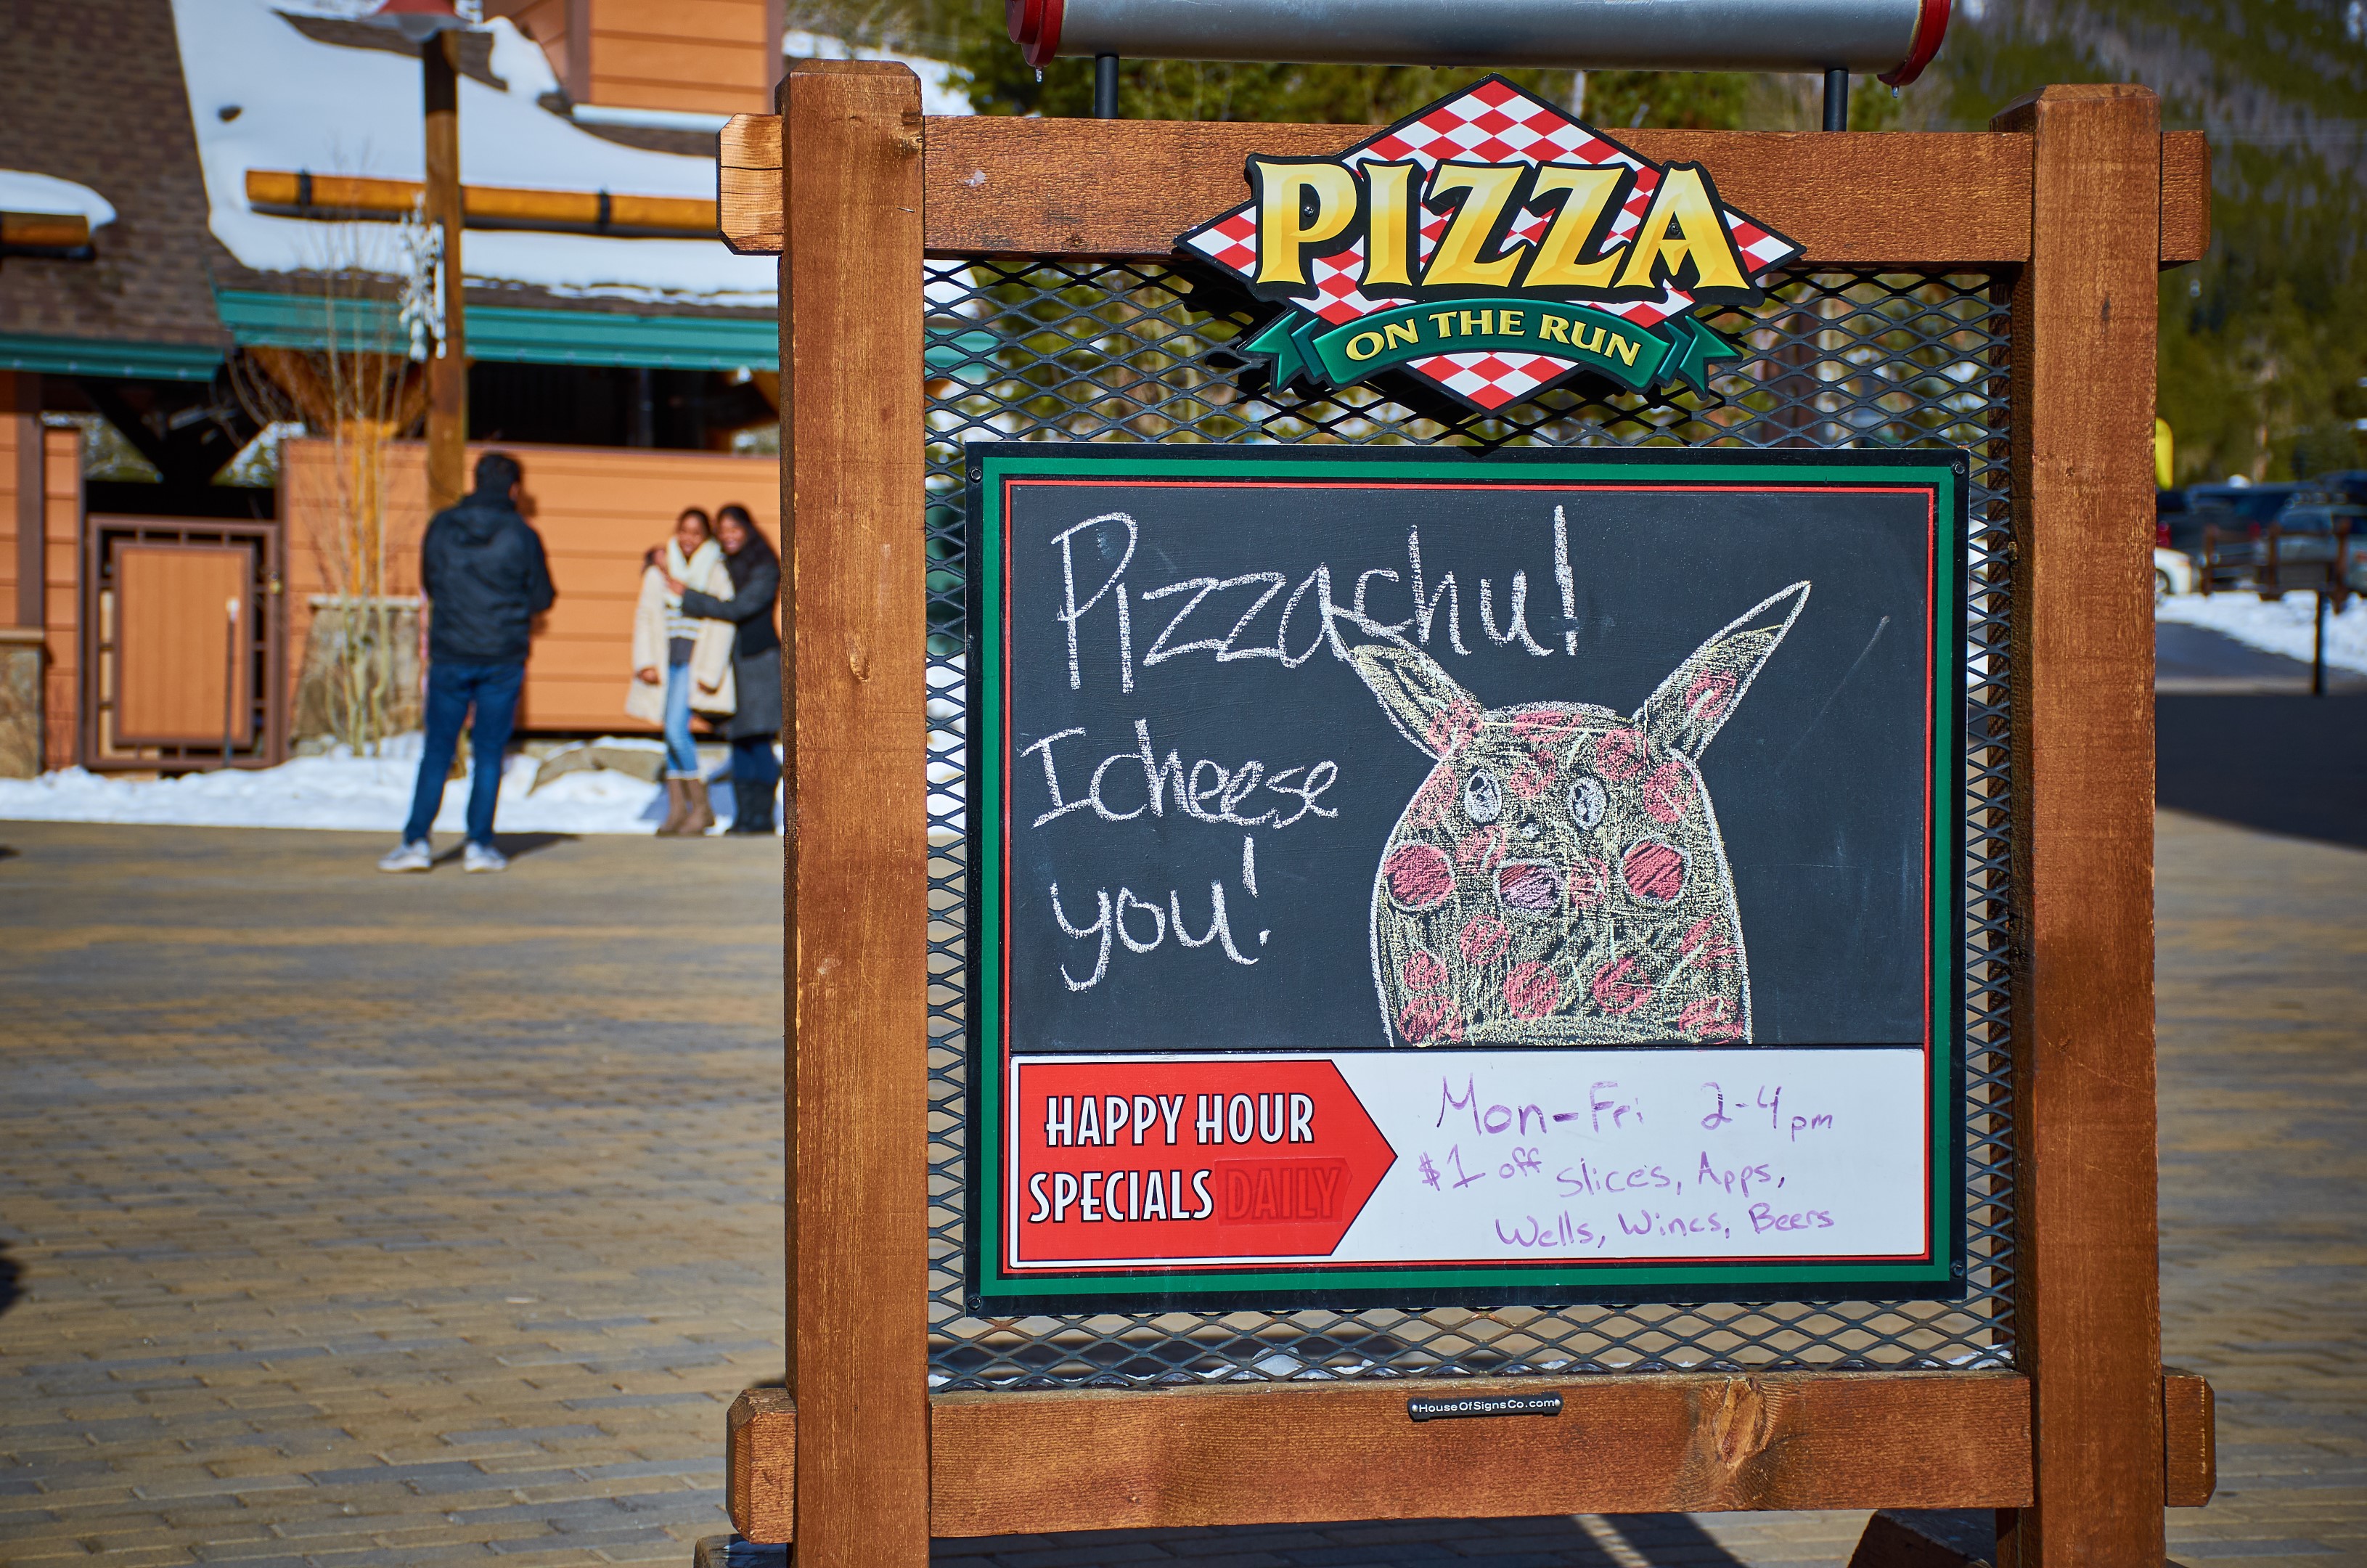 PIZZA
ON THE RUN
Pizzachu!
I cheese
you!
HAPPY HOUR
SPECIALS DAILY
Mon-Fri 2-4pm
$1 off Slices, Apps,
Wells, Wines, Beers
HouseOfSignsCo.com